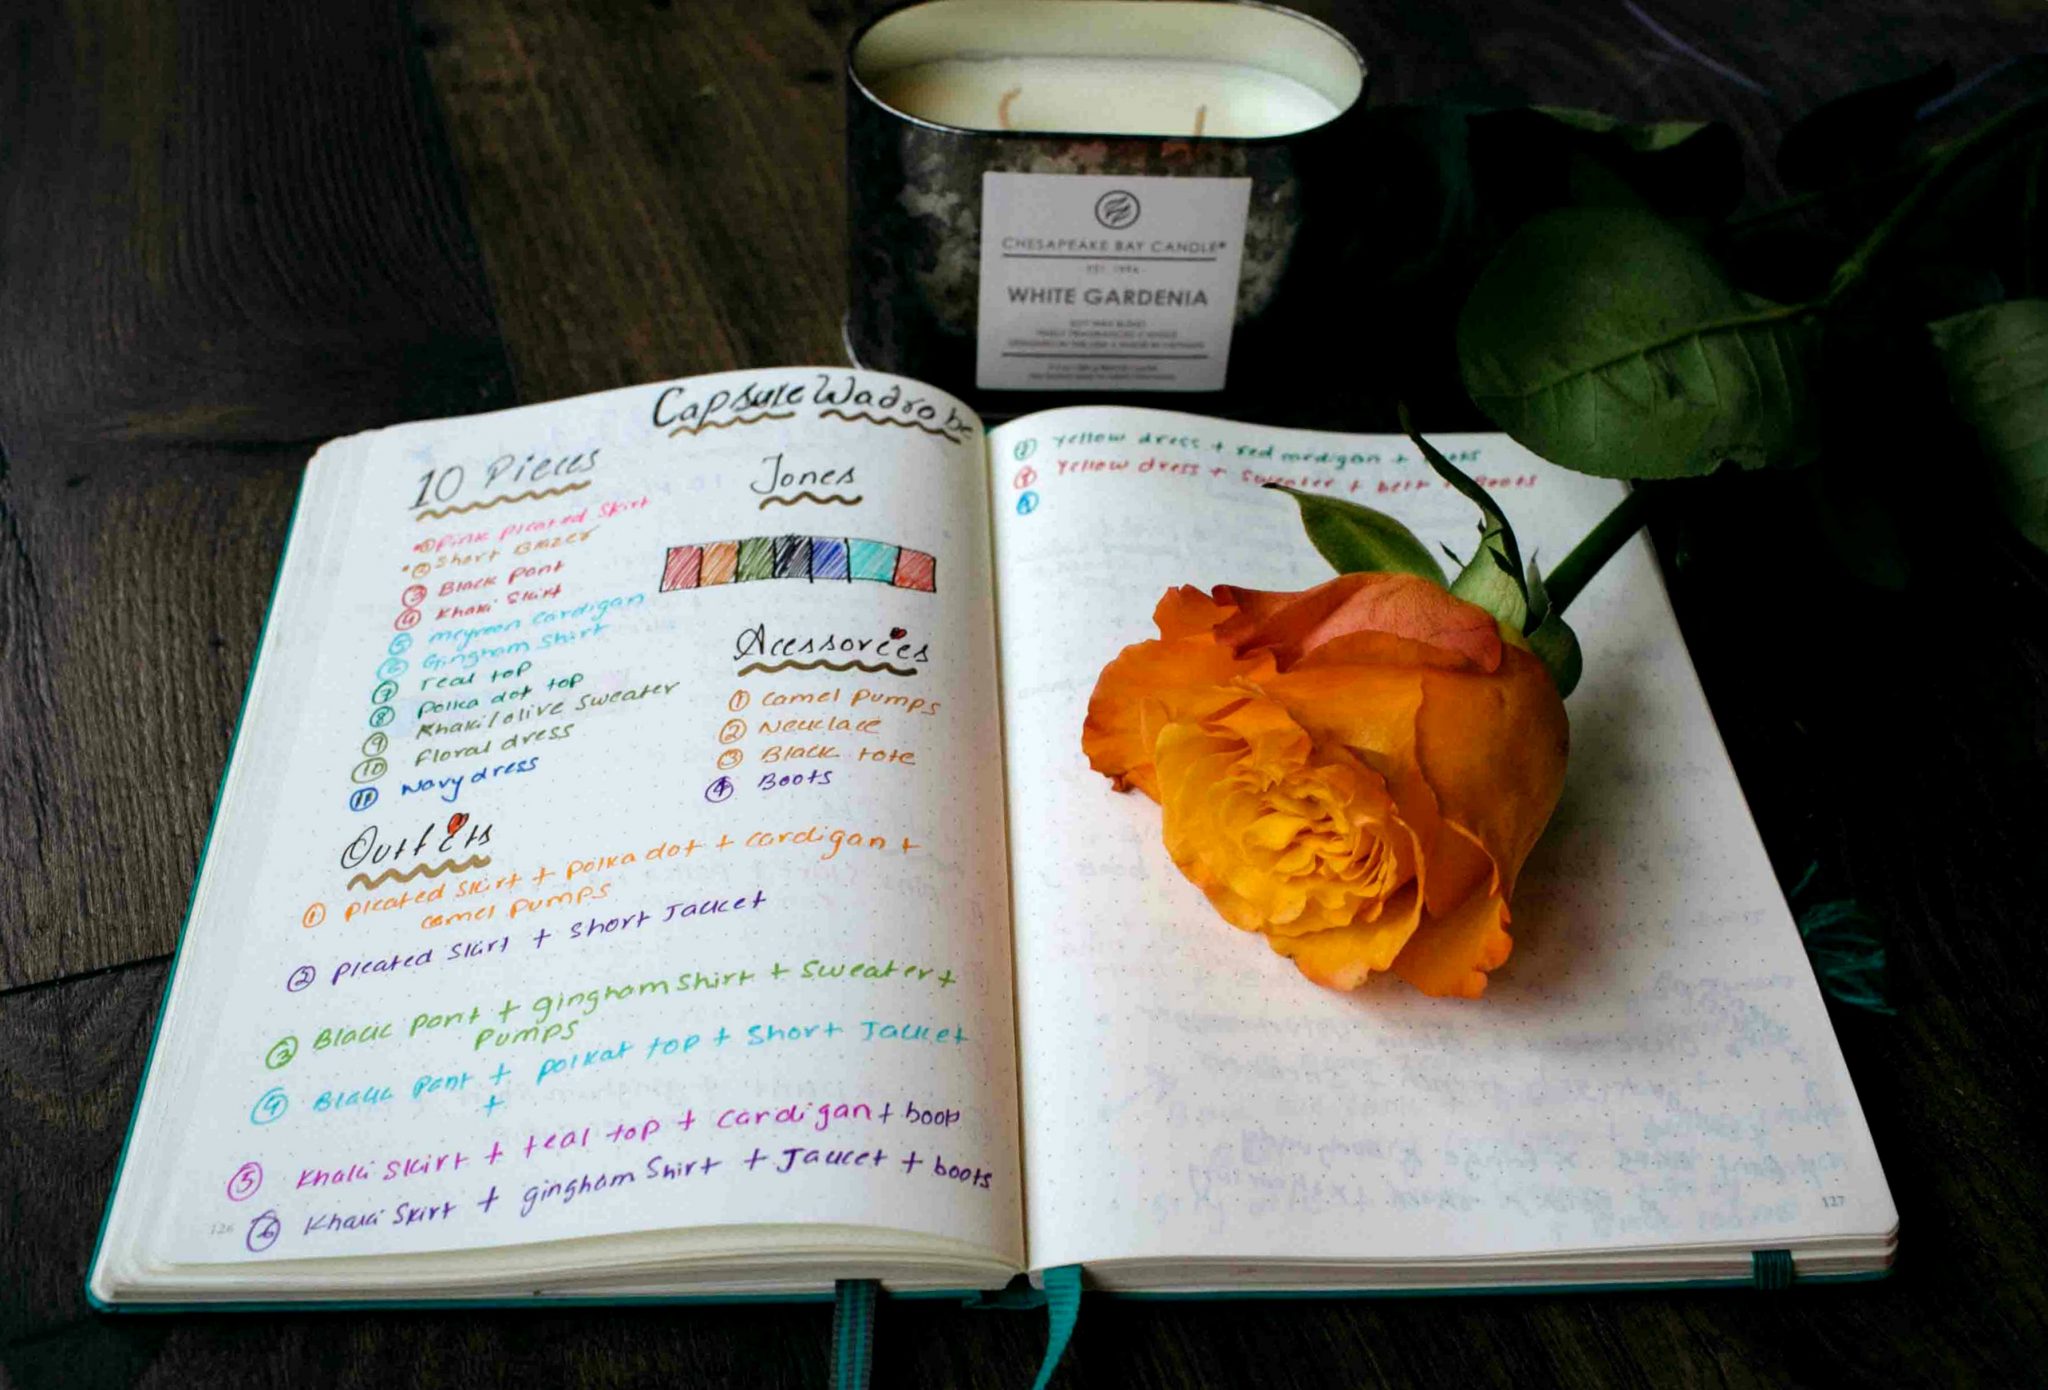 CHESAPEAKE BAY CANDLE®
EST. 1994
WHITE GARDENIA
Capsule Wadrobe
10 Pieces
① Pink Pleated Skirt
② Short Blazer
③ Black Pant
④ Khaki Skirt
⑤ Cardigan
⑥ Gingham Shirt
⑦ Teal top
⑧ Polka dot top
⑨ Khaki/olive Sweater
⑩ Floral dress
⑪ Navy dress
Jones
Acessories
① Camel Pumps
② Necklace
③ Black tote
④ Boots
Outfits
① Pleated Skirt + Polka dot + Cardigan +
Camel Pumps
② Pleated Skirt + Short Jacket
③ Black Pant + gingham Shirt + Sweater +
Pumps
④ Black Pant + Polkat top + Short Jacket
+
⑤ Khaki Skirt + teal top + Cardigan + boop
⑥ Khaki Skirt + gingham Shirt + Jacket + boots
126
Yellow dress + red +
Yellow dress + Sweater + belt + Boots
127